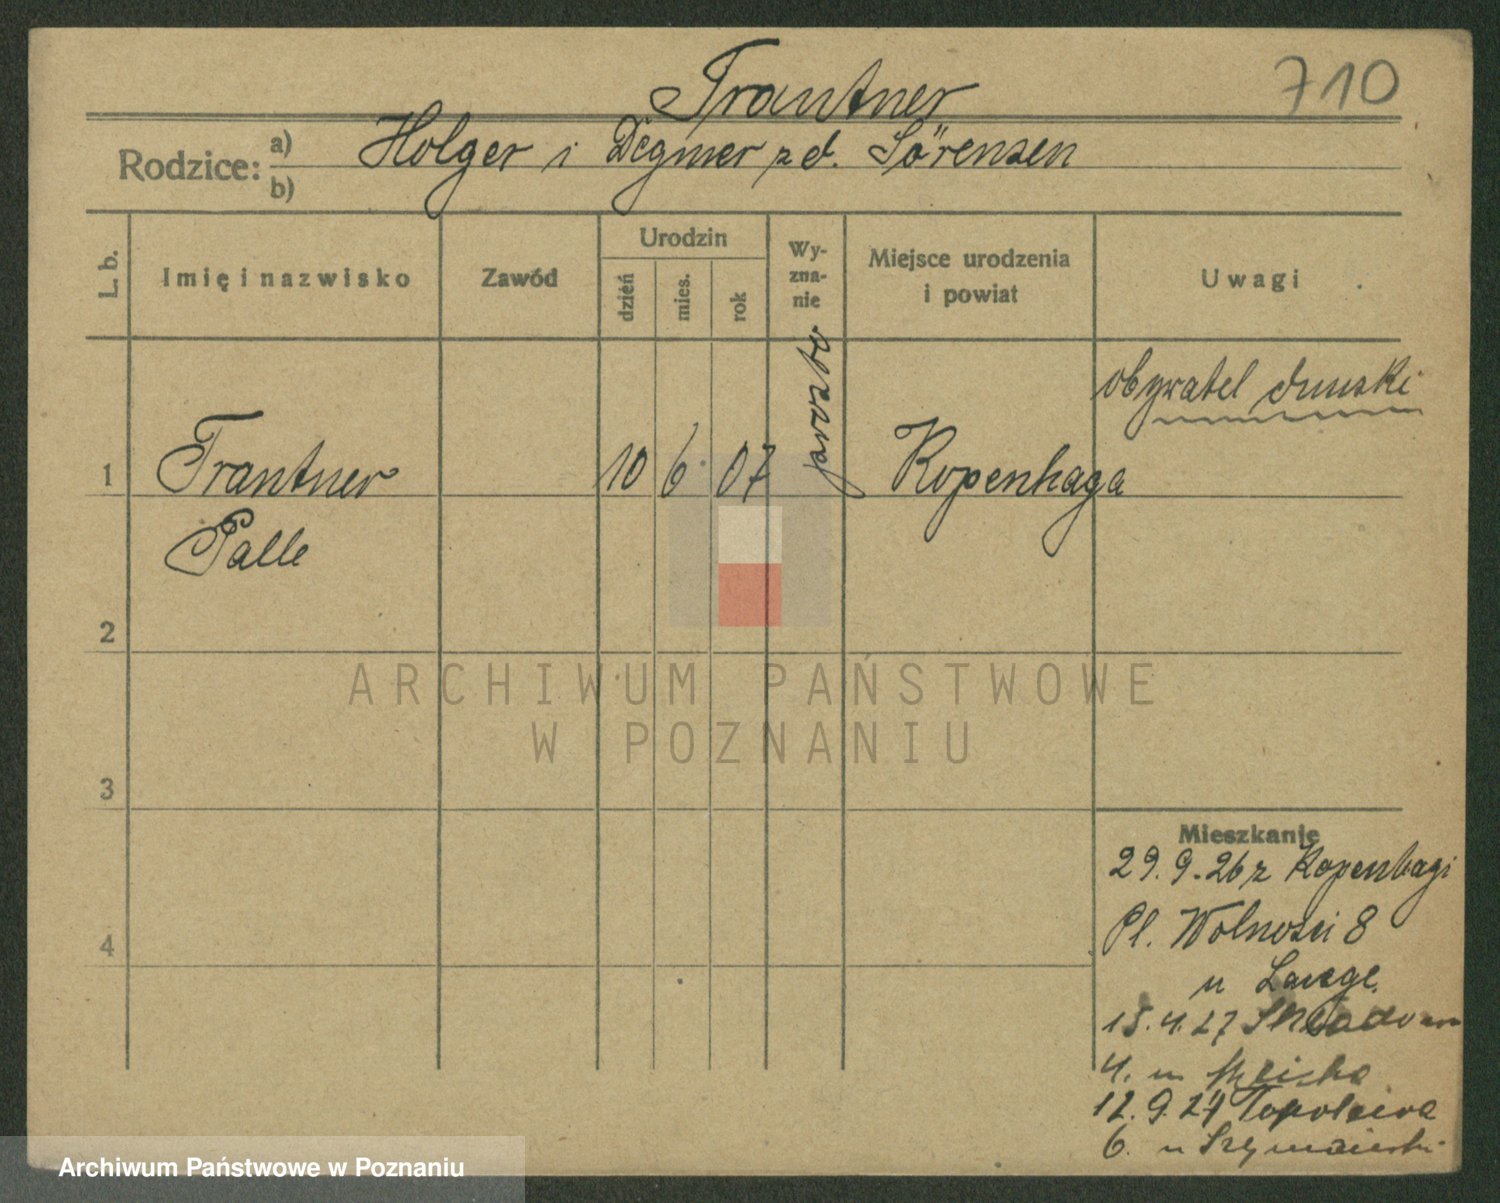 Trantner
710
Rodzice: a) Holger i Degmer z d. Sörensen
b)
L. b.
Imię i nazwisko
Zawód
Urodzin
dzień
mies.
rok
Wy-
zna-
nie
Miejsce urodzenia
i powiat
Uwagi
obywatel duński
1 Trantner 10 6 07 Kopenhaga
Palle
2
3
4
Mieszkanie
29. 9. 26 z Kopenhagi
Pl. Wolności 8
u Lange.
15. 4. 27
4. u
12. 9. 27 Topolowa
6. u
ARCHIWUM PAŃSTWOWE
W POZNANIU
Archiwum Państwowe w Poznaniu